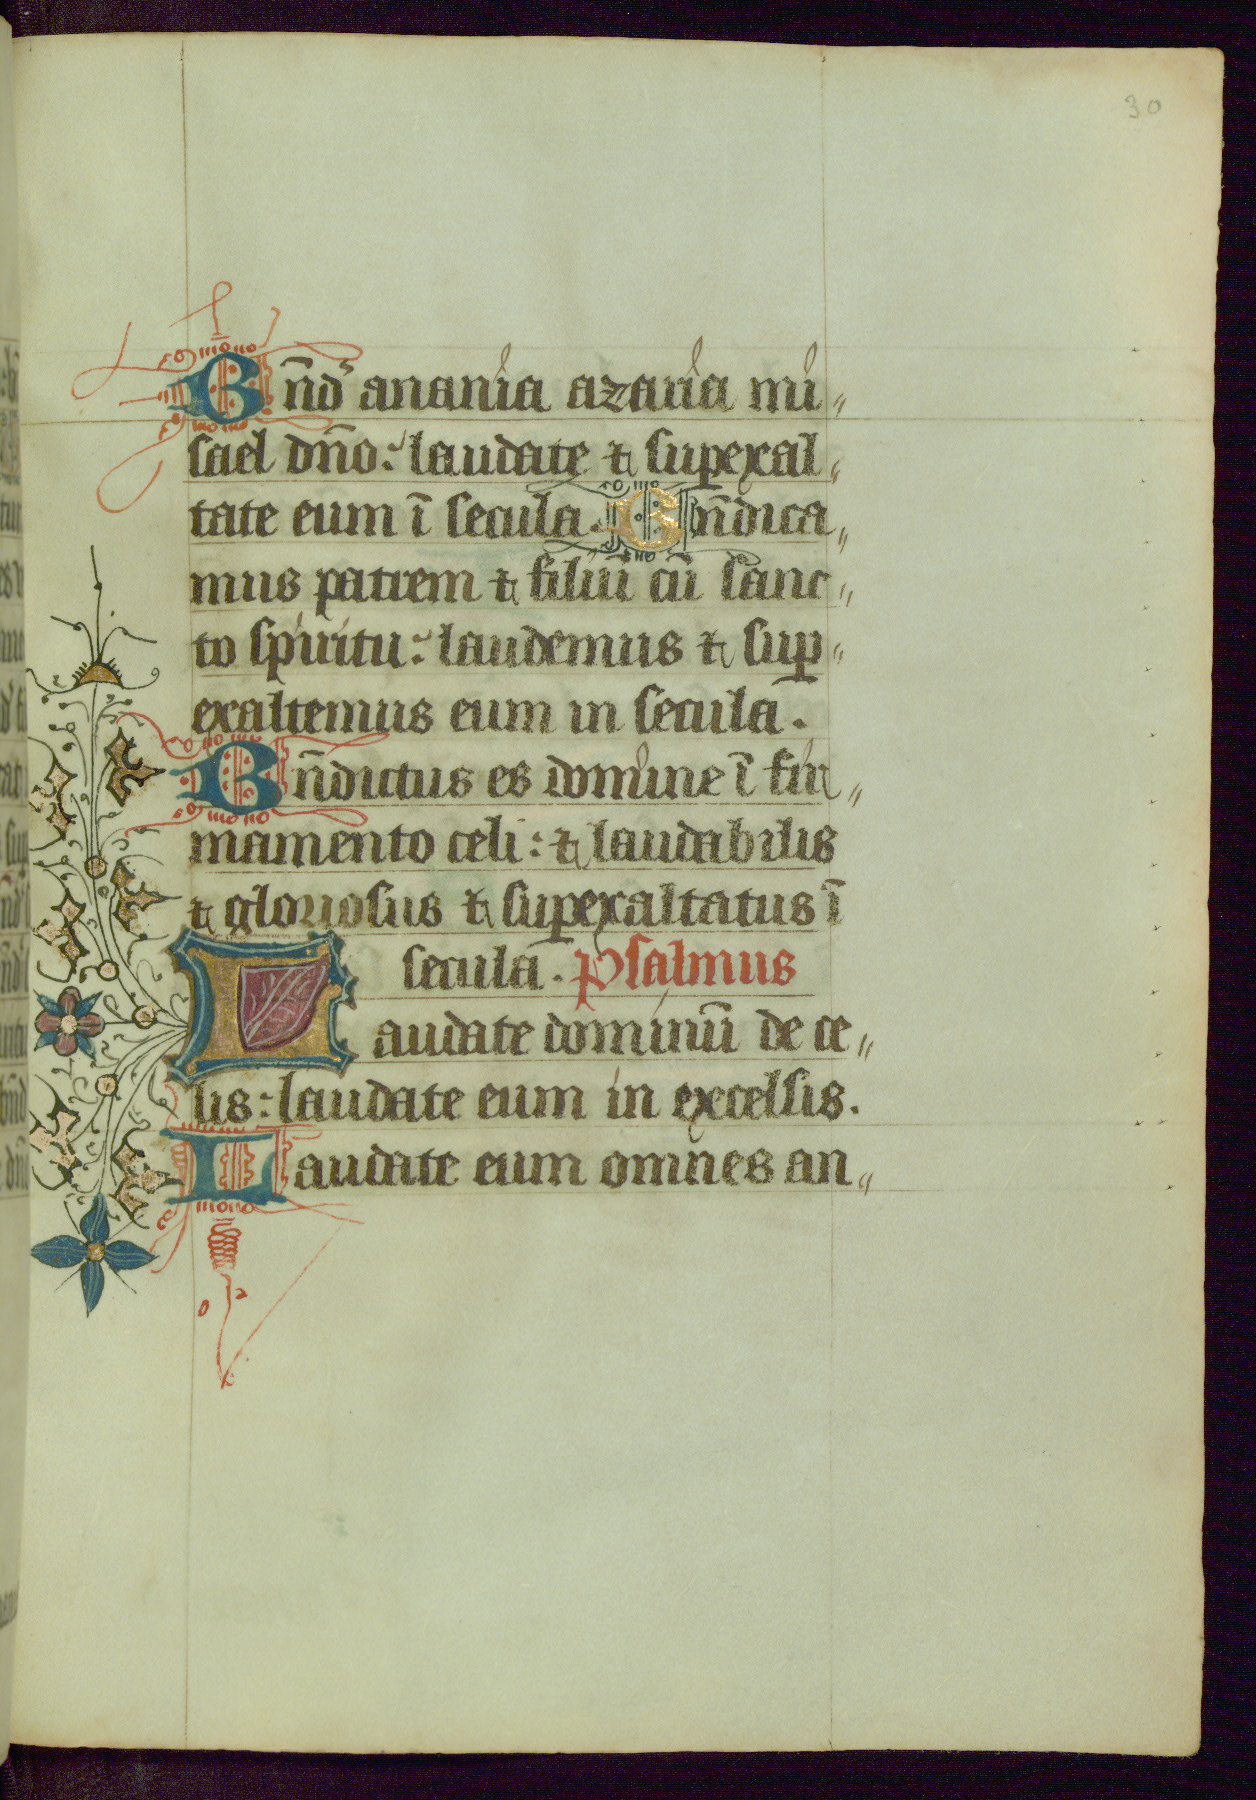 30
Bñd' anania azaria mi〃
sael dño: laudate ⁊ supexal〃
tate eum ī secula. Bñdica〃
mus patrem ⁊ filiū cū sanc〃
to spiritu: laudemus ⁊ sup〃
exaltemus eum in secula.
Bñdictus es domine ī fir〃
mamento celi: ⁊ laudabilis
⁊ gloriosus ⁊ supexaltatus ī
secula. Psalmus
Laudate dominū de ce〃
lis: laudate eum in excelsis.
Laudate eum omnes an〃